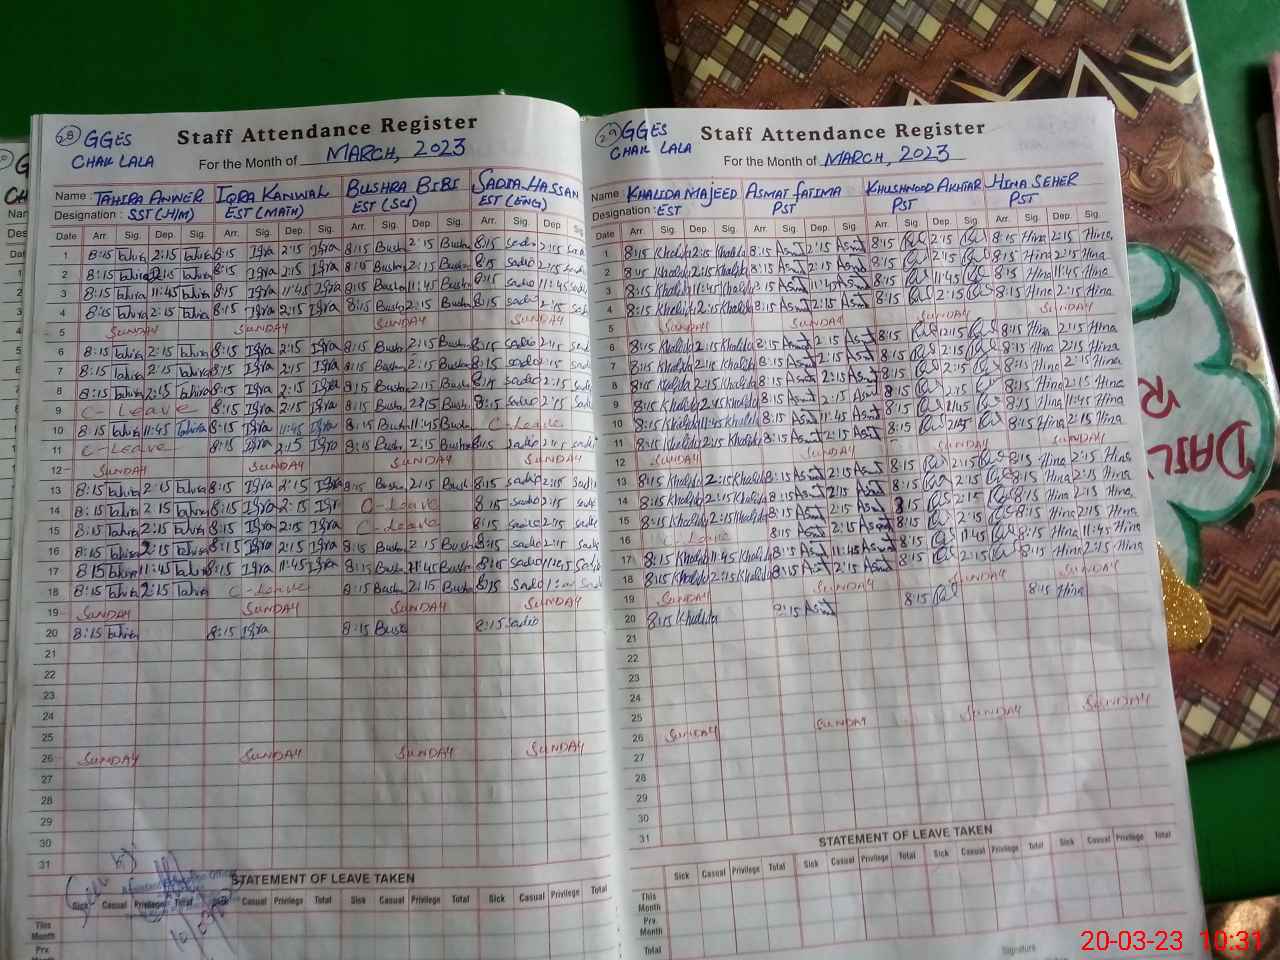 28 GGES
CHAK LALA
Staff Attendance Register
For the Month of MARCH, 2023
Name : TAHIRA ANWER IQRA KANWAL BUSHRA BIBI SADIA HASSAN
Designation : SST (H/M) EST (MATH) EST (SCI) EST (ENG)
Date Arr. Sig. Dep. Sig. Arr. Sig. Dep. Sig. Arr. Sig. Dep. Sig. Arr. Sig. Dep. Sig.
1 8:15 Tahira 2:15 Tahira 8:15 Iqra 2:15 Iqra 8:15 Bush 2:15 Bush 8:15 Sadia 2:15
2 8:15 Tahira 2:15 Tahira 8:15 Iqra 2:15 Iqra 8:15 Bush 2:15 Bush 8:15 Sadia 2:15
3 8:15 Tahira 11:45 Tahira 8:15 Iqra 11:45 Iqra 8:15 Bush 11:45 Bush 8:15 Sadia 11:45
4 8:15 Tahira 2:15 Tahira 8:15 Iqra 2:15 Iqra 8:15 Bush 2:15 Bush 8:15 Sadia 2:15
5 SUNDAY SUNDAY SUNDAY SUNDAY
6 8:15 Tahira 2:15 Tahira 8:15 Iqra 2:15 Iqra 8:15 Bush 2:15 Bush 8:15 Sadia 2:15
7 8:15 Tahira 2:15 Tahira 8:15 Iqra 2:15 Iqra 8:15 Bush 2:15 Bush 8:15 Sadia 2:15
8 8:15 Tahira 2:15 Tahira 8:15 Iqra 2:15 Iqra 8:15 Bush 2:15 Bush 8:15 Sadia 2:15
9 C-Leave 8:15 Iqra 2:15 Iqra 8:15 Bush 2:15 Bush 8:15 Sadia 2:15
10 8:15 Tahira 11:45 Tahira 8:15 Iqra 11:45 Iqra 8:15 Bush 11:45 Bush C-Leave
11 C-Leave 8:15 Iqra 2:15 Iqra 8:15 Bush 2:15 Bush 8:15 Sadia 2:15
12 SUNDAY SUNDAY SUNDAY SUNDAY
13 8:15 Tahira 2:15 Tahira 8:15 Iqra 2:15 Iqra 8:15 Bush 2:15 Bush 8:15 Sadia 2:15
14 8:15 Tahira 2:15 Tahira 8:15 Iqra 2:15 Iqra C-Leave 8:15 Sadia 2:15
15 8:15 Tahira 2:15 Tahira 8:15 Iqra 2:15 Iqra C-Leave 8:15 Sadia 2:15
16 8:15 Tahira 2:15 Tahira 8:15 Iqra 2:15 Iqra 8:15 Bush 2:15 Bush 8:15 Sadia 2:15
17 8:15 Tahira 11:45 Tahira 8:15 Iqra 11:45 Iqra 8:15 Bush 11:45 Bush 8:15 Sadia 11:45
18 8:15 Tahira 2:15 Tahira C-Leave 8:15 Bush 2:15 Bush 8:15 Sadia
19 SUNDAY SUNDAY SUNDAY SUNDAY
20 8:15 Tahira 8:15 Iqra 8:15 Bush 8:15 Sadia
21
22
23
24
25
26 SUNDAY SUNDAY SUNDAY SUNDAY
27
28
29
30
31
STATEMENT OF LEAVE TAKEN
Sick Casual Privilege Total Casual Privilege Total Sick Casual Privilege Total Sick Casual Privilege Total
This Month
Prv.
29 GGES
CHAK LALA
Staff Attendance Register
For the Month of MARCH, 2023
Name : KHALIDA MAJEED ASMAT FATIMA KHUSHNOOD AKHTAR HINA SEHER
Designation : EST PST PST PST
Date Arr. Sig. Dep. Sig. Arr. Sig. Dep. Sig. Arr. Sig. Dep. Sig. Arr. Sig. Dep. Sig.
1 8:15 Khalida 2:15 Khalida 8:15 Asmt 2:15 Asmt 8:15 2:15 8:15 Hina 2:15 Hina
2 8:15 Khalida 2:15 Khalida 8:15 Asmt 2:15 Asmt 8:15 2:15 8:15 Hina 2:15 Hina
3 8:15 Khalida 11:45 Khalida 8:15 Asmt 11:45 Asmt 8:15 11:45 8:15 Hina 11:45 Hina
4 8:15 Khalida 2:15 Khalida 8:15 Asmt 2:15 Asmt 8:15 2:15 8:15 Hina 2:15 Hina
5 SUNDAY SUNDAY SUNDAY SUNDAY
6 8:15 Khalida 2:15 Khalida 8:15 Asmt 2:15 Asmt 8:15 2:15 8:15 Hina 2:15 Hina
7 8:15 Khalida 2:15 Khalida 8:15 Asmt 2:15 Asmt 8:15 2:15 8:15 Hina 2:15 Hina
8 8:15 Khalida 2:15 Khalida 8:15 Asmt 2:15 Asmt 8:15 2:15 8:15 Hina 2:15 Hina
9 8:15 Khalida 2:15 Khalida 8:15 Asmt 2:15 Asmt 8:15 2:15 8:15 Hina 2:15 Hina
10 8:15 Khalida 11:45 Khalida 8:15 Asmt 11:45 Asmt 8:15 11:45 8:15 Hina 11:45 Hina
11 8:15 Khalida 2:15 Khalida 8:15 Asmt 2:15 Asmt 8:15 2:15 8:15 Hina 2:15 Hina
12 SUNDAY SUNDAY SUNDAY SUNDAY
13 8:15 Khalida 2:15 Khalida 8:15 Asmt 2:15 Asmt 8:15 2:15 8:15 Hina 2:15 Hina
14 8:15 Khalida 2:15 Khalida 8:15 Asmt 2:15 Asmt 8:15 2:15 8:15 Hina 2:15 Hina
15 8:15 Khalida 2:15 Khalida 8:15 Asmt 2:15 Asmt 8:15 2:15 8:15 Hina 2:15 Hina
16 C-Leave 8:15 Asmt 2:15 Asmt 8:15 2:15 8:15 Hina 2:15 Hina
17 8:15 Khalida 11:45 Khalida 8:15 Asmt 11:45 Asmt 8:15 11:45 8:15 Hina 11:45 Hina
18 8:15 Khalida 2:15 Khalida 8:15 Asmt 2:15 Asmt 8:15 2:15 8:15 Hina 2:15 Hina
19 SUNDAY SUNDAY SUNDAY SUNDAY
20 8:15 Khalida 8:15 Asmt 8:15 8:15 Hina
21
22
23
24
25
26 SUNDAY SUNDAY SUNDAY SUNDAY
27
28
29
30
31
STATEMENT OF LEAVE TAKEN
Sick Casual Privilege Total Sick Casual Privilege Total Sick Casual Privilege Total Sick Casual Privilege Total
This Month
Prv. Month
Total
Signature
DAIL
R
20-03-23 10:31